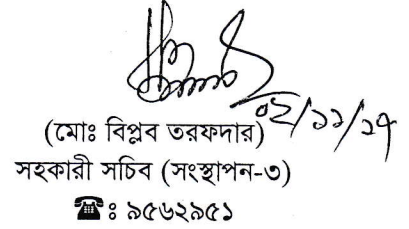 ০২/১১/১৭
(মোঃ বিপ্লব তরফদার)
সহকারী সচিব (সংস্থাপন-৩)
☎ঃ ৯৫৬২৯৫১